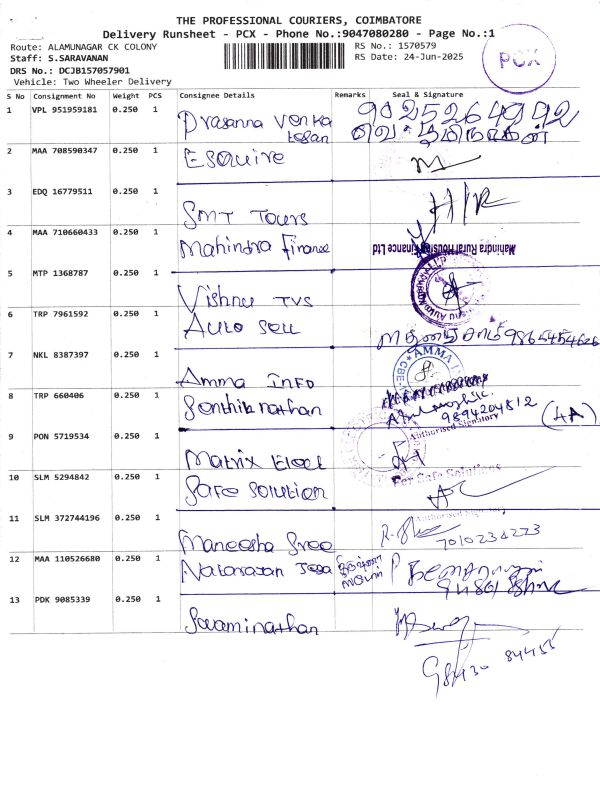 THE PROFESSIONAL COURIERS, COIMBATORE
Delivery Runsheet - PCX - Phone No.:9047080280 - Page No.:1
Route: ALAMUNAGAR CK COLONY
Staff: S.SARAVANAN
DRS No.: DCJB157057901
Vehicle: Two Wheeler Delivery
RS No.: 1570579
RS Date: 24-Jun-2025
PCX
S No Consignment No Weight PCS Consignee Details Remarks Seal & Signature
1 VPL 951959181 0.250 1 Prasanna Venka
tesan
9025264992
2 MAA 708590347 0.250 1 Esquire
3 EDQ 16779511 0.250 1 SMT Tours H/R
4 MAA 710660433 0.250 1 Mahindra Finance Mahindra Rural Housing Finance Ltd
5 MTP 1368787 0.250 1 Vishnu TVS
6 TRP 7961592 0.250 1 Auto Sell
7 NKL 8387397 0.250 1 Amma Info AMMA
8 TRP 660406 0.250 1 Senthilnathan 9894204812 (4A)
Authorised Signatory
9 PON 5719534 0.250 1 Matrix Elect
For Safe Solutions
10 SLM 5294842 0.250 1 Safe Solution
Authorised Signatory
11 SLM 372744196 0.250 1 Maneesha Sree 7010234223
12 MAA 110526680 0.250 1 Natarajan
13 PDK 9085339 0.250 1 Swaminathan